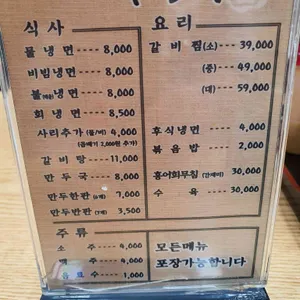 식사
물냉면 ---- 8,000
비빔냉면 --- 8,000
불(매운)냉면 -- 8,000
회냉면 ---- 8,500
사리추가 (물/비) 4,000
(곱빼기 2,000원 추가)
갈비탕 ---- 11,000
만두국 ---- 8,000
만두한판 (6개) 7,000
만두반판 (3개) 3,500
요리
갈비찜(소) --- 39,000
(중) --- 49,000
(대) --- 59,000
후식냉면 ---- 4,000
볶음밥 ---- 2,000
홍어회무침 30,000
수육 ---- 30,000
주류
소주 ---- 4,000
맥주 ---- 4,000
음료수 ---- 1,000
모든메뉴
포장가능합니다